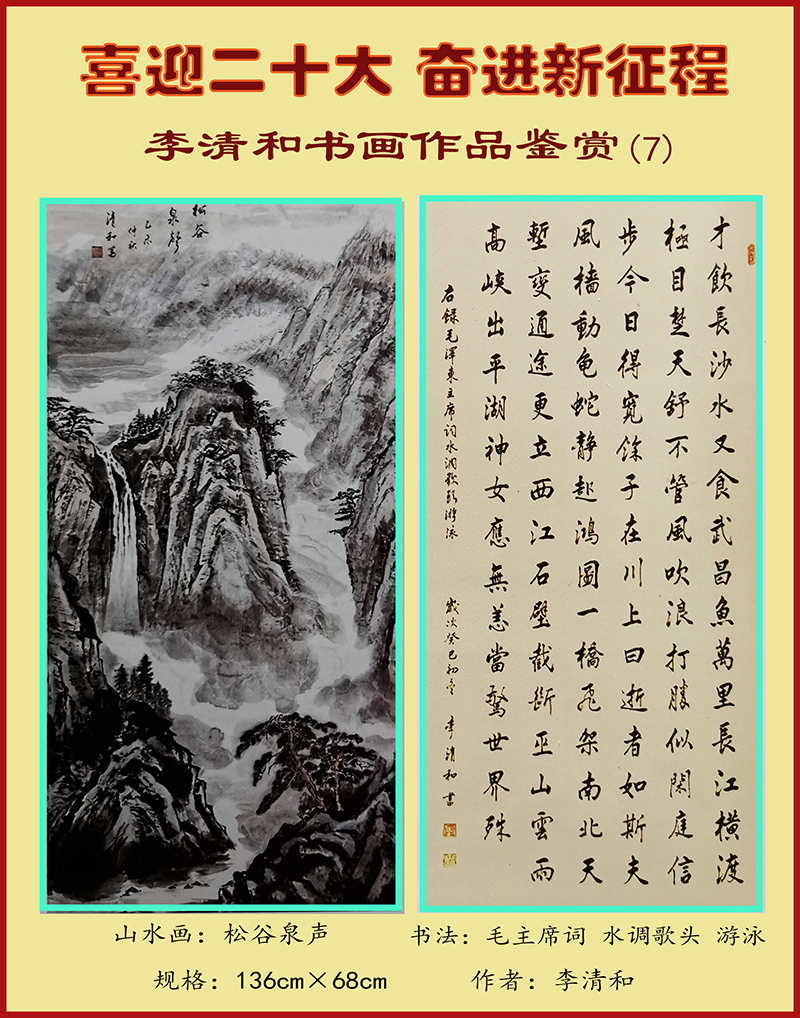 喜迎二十大 奋进新征程
李清和书画作品鉴赏(7)
松谷
泉聲
乙未
仲秋
清和寫
才飲長沙水又食武昌魚萬里長江橫渡
極目楚天舒不管風吹浪打勝似閑庭信
步今日得寬餘子在川上曰逝者如斯夫
風檣動龜蛇靜起鴻圖一橋飛架南北天
塹變通途更立西江石壁截斷巫山雲雨
高峽出平湖神女應無恙當驚世界殊
右錄毛澤東主席詞水調歌頭游泳 歲次癸巳初冬 李清和書
山水画：松谷泉声
书法：毛主席词 水调歌头 游泳
规格：136cm×68cm
作者：李清和